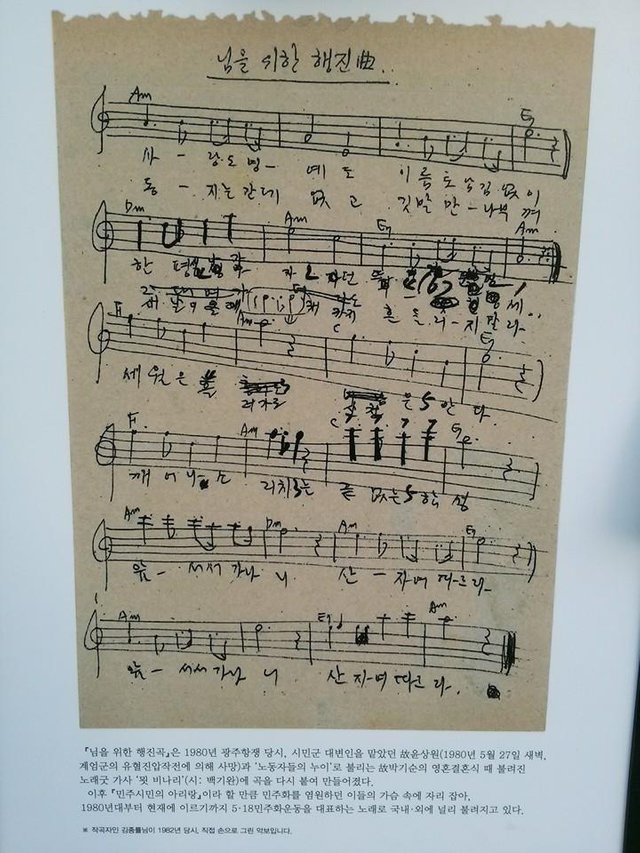 님을 위한 행진曲.
Am E7
사 - 랑도 명 - 예도 이름도 남김 없이
동 - 지는 간데 없고 깃발만 - 나부껴
Dm Am E7 Am
한 평생 나가자던
세월은 흘러가도 산천은 안다
F Am C E7
깨어나 소리치는 끝 없는 함성
Am Dm Am E7
앞 - 서서 가나니 산 - 자여 따르라
Am E7 Am
앞 - 서서 가나니 산자여 따르라.
『님을 위한 행진곡』은 1980년 광주항쟁 당시, 시민군 대변인을 맡았던 故윤상원(1980년 5월 27일 새벽,
계엄군의 유혈진압작전에 의해 사망)과 '노동자들의 누이'로 불리는 故박기순의 영혼결혼식 때 불려진
노래굿 가사 '묏 비나리'(시: 백기완)에 곡을 다시 붙여 만들어졌다.
이후 『민주시민의 아리랑』이라 할 만큼 민주화를 염원하던 이들의 가슴 속에 자리 잡아,
1980년대부터 현재에 이르기까지 5·18민주화운동을 대표하는 노래로 국내·외에 널리 불려지고 있다.
※ 작곡자인 김종률님이 1982년 당시, 직접 손으로 그린 악보입니다.